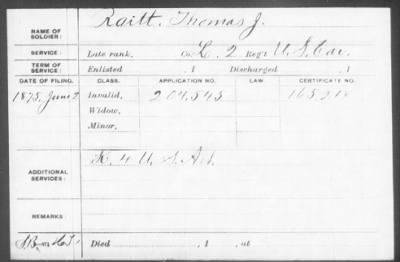 NAME OF SOLDIER: Raitt, Thomas J.
SERVICE: Late rank, Co. L. 2 Reg't U.S. Cav.
TERM OF SERVICE: Enlisted , 1 Discharged , 1
DATE OF FILING. CLASS. APPLICATION NO. LAW. CERTIFICATE NO.
1875, June Invalid, 204,843 165,218
Widow,
Minor,
ADDITIONAL SERVICES: K. 4 U.S. Art.
REMARKS:
Died , 1 , at